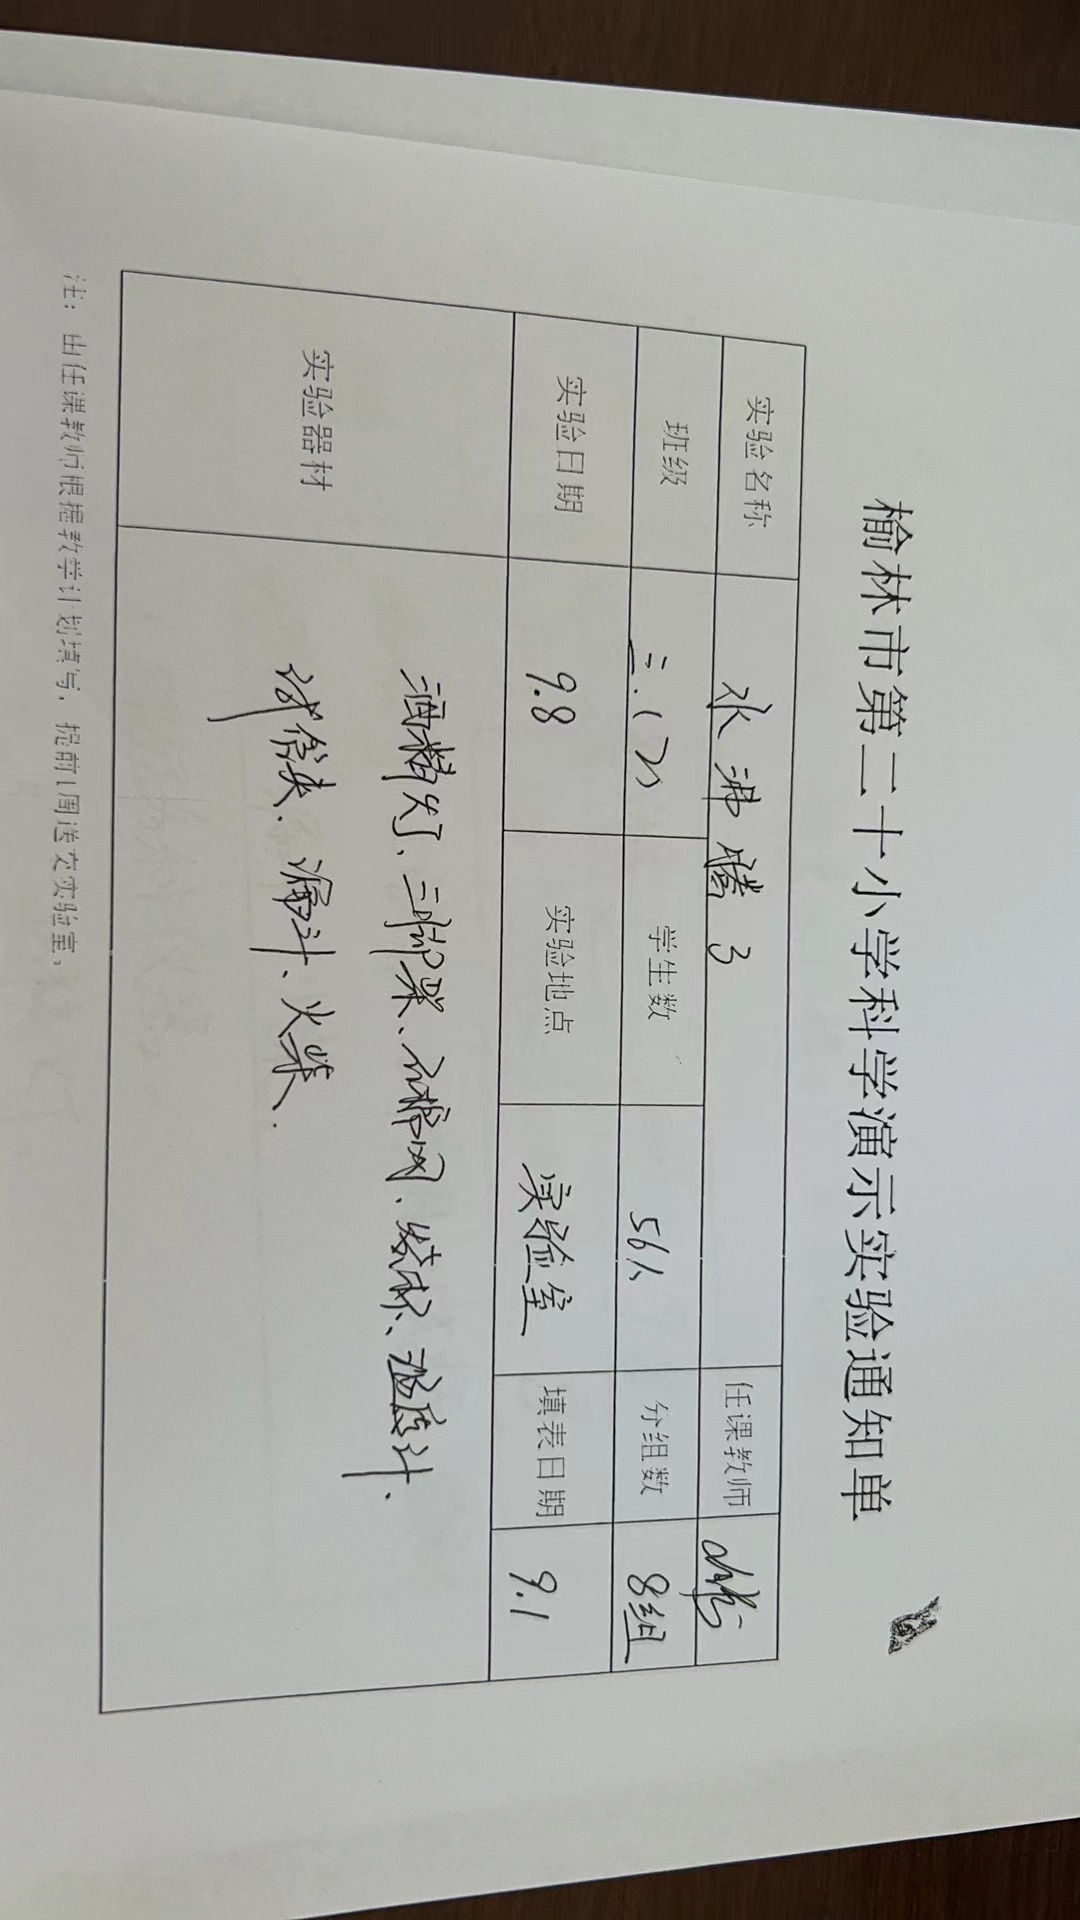 榆林市第二十小学科学演示实验通知单
实验名称 水沸腾了 任课教师
班级 三.(2) 学生数 56人 分组数 8组
实验日期 9.8 实验地点 实验室 填表日期 9.1
实验器材 酒精灯、三脚架、石棉网、烧杯、温度计、
试管夹、漏斗、火柴.
注：由任课教师根据教学计划填写，提前1周送交实验室。